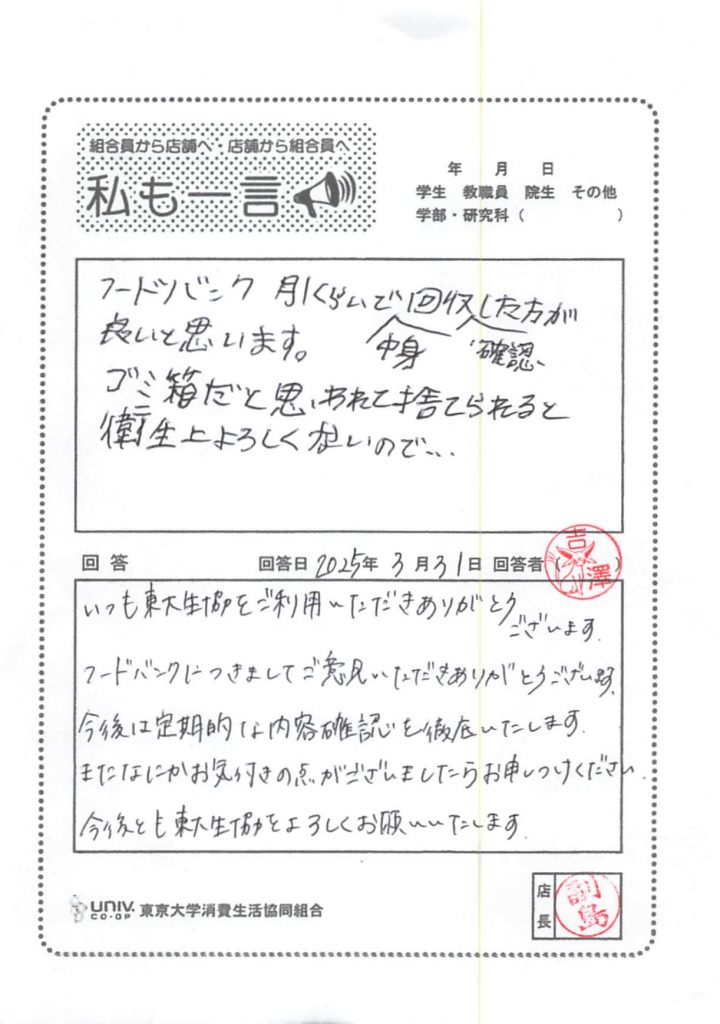 組合員から店舗へ・店舗から組合員へ
私も一言
年 月 日
学生 教職員 院生 その他
学部・研究科( )
フードバンク 月1くらいで回収した方が
中身 確認
良いと思います。
ゴミ箱だと思われて捨てられると
衛生上よろしくないので…
回答 回答日 2025年 3月31日 回答者( )
吉澤
いつも東大生協をご利用いただきありがとう
ございます.
フードバンクにつきましてご意見いただきありがとうございます.
今後は定期的な内容確認を徹底いたします.
またなにかお気付きの点がございましたらお申しつけください.
今後とも東大生協をよろしくお願いいたします.
UNIV.
CO-OP 東京大学消費生活協同組合
店長
副島